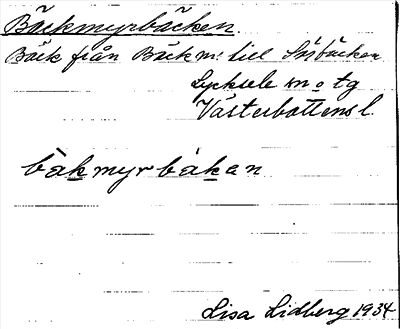 Bäckmyrbäcken.
Bäck från Bäckm: till Sösbäcken
Lycksele sn o tg
Västerbottens l.
bàkmyrbákan
Lisa Lidberg 1934